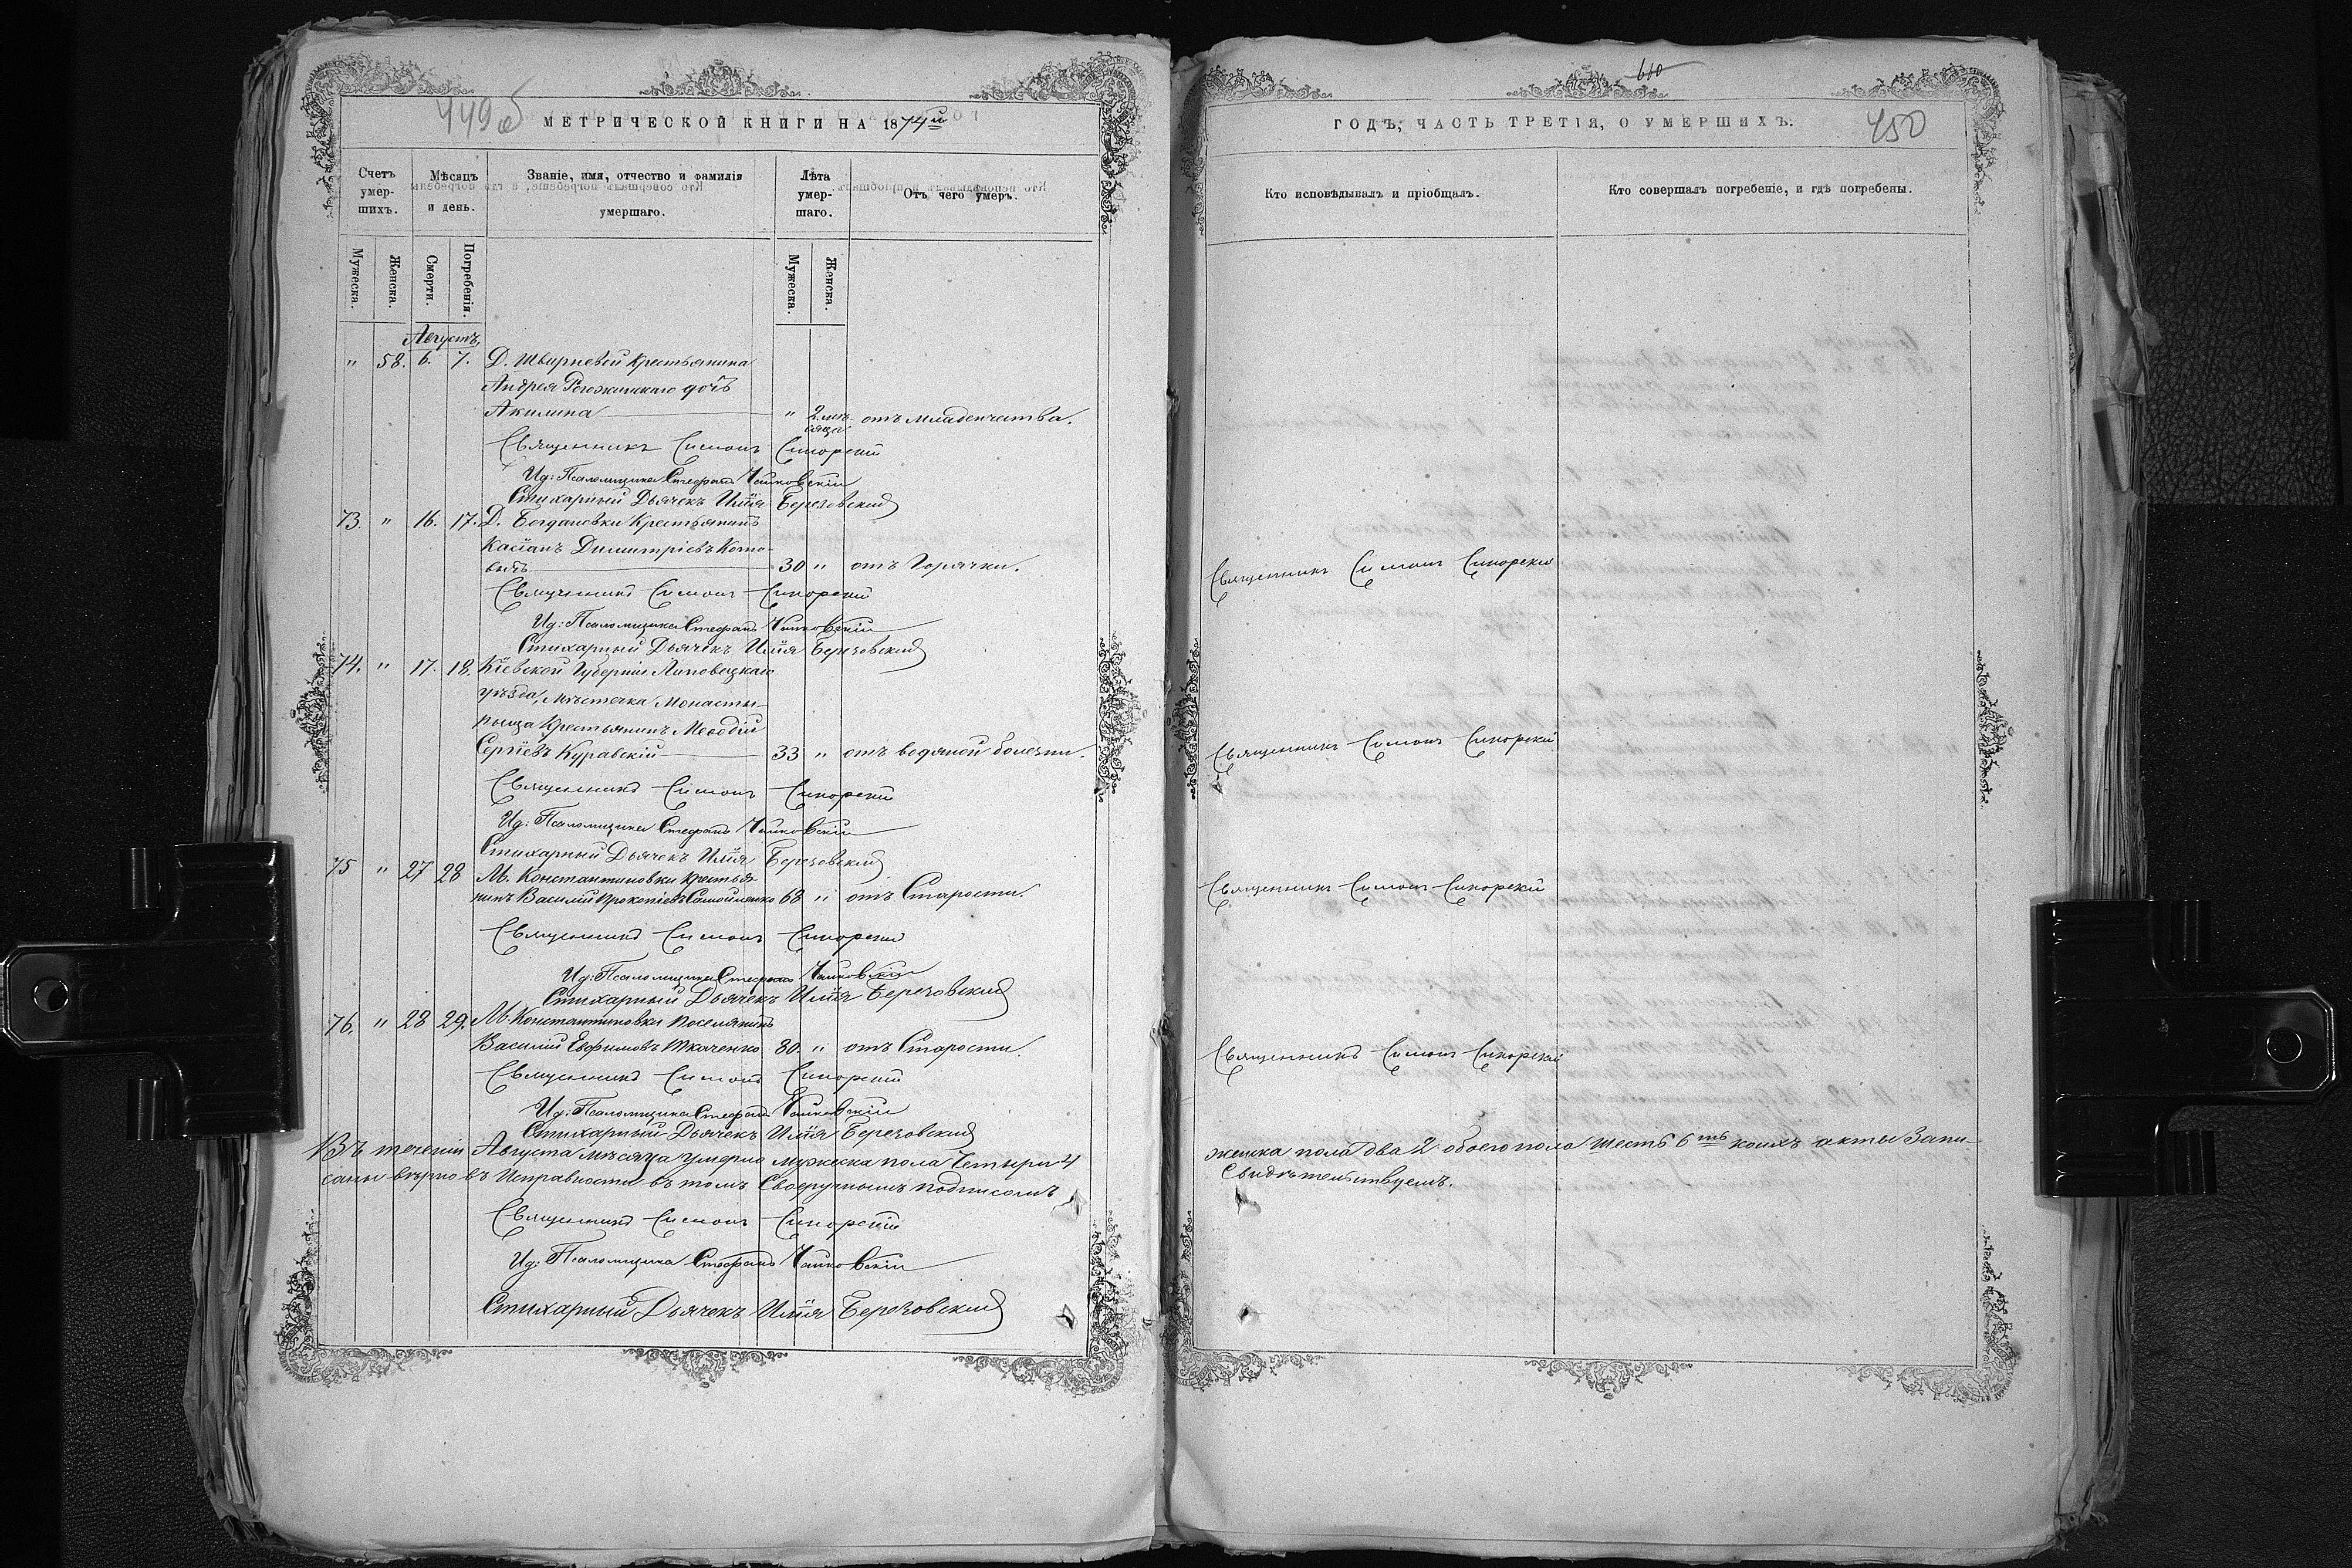 449об
МЕТРИЧЕСКОЙ КНИГИ НА 1874й
Счетъ умер-шихъ.
Мѣсяцъ и день.
Званіе, имя, отчество и фамилія умершаго.
Лѣта умер-шаго.
Отъ чего умеръ.
Мужеска.
Женска.
Смерти.
Погребенія.
Мужеска.
Женска.
Августъ
" 58. 6. 7. Д. Швырневой Крестьянина
Андрея Рогожинскаго дочь
Акилина " 2 мѣ-сяца отъ младенчества.
Священникъ Симонъ Сикорскій
Ид: Псаломщика Стефанъ Чайковскій
Стихарный Дьячекъ Илія Березовскій
73. " 16. 17. Д. Богдановки Крестьянинъ
Касіанъ Димитріевъ Кото-
вичъ 30 " отъ Горячки.
Священникъ Симонъ Сикорскій
Ид: Псаломщика Стефанъ Чайковскій
Стихарный Дьячекъ Илія Березовскій
74. " 17. 18. Кіевской Губерніи Липовецкаго
уѣзда, мѣстечка Монасты-
рыща Крестьянинъ Меѳодій
Сергіевъ Куравскій 33 " отъ водяной болезни.
Священникъ Симонъ Сикорскій
Ид: Псаломщика Стефанъ Чайковскій
Стихарный Дьячекъ Илія Березовскій
75 " 27 28 М. Константиновки крестья-
нинъ Василій Прокопіевъ Самойленко 68 " отъ Старости.
Священникъ Симонъ Сикорскій
Ид: Псаломщика Стефанъ Чайковскій
Стихарный Дьячекъ Илія Березовскій
76. " 28 29. М. Константиновки поселянинъ
Василій Евфимовъ Ткаченко 80. " отъ Старости.
Священникъ Симонъ Сикорскій
Ид: Псаломщика Стефанъ Чайковскій
Стихарный Дьячекъ Илія Березовскій
Въ теченіи Августа мѣсяца умерло мужеска пола Четыри 4
саны вѣрно въ Исправности въ томъ Своеручнымъ подписомъ
Священникъ Симонъ Сикорскій
Ид: Псаломщика Стефанъ Чайковскій
Стихарный Дьячекъ Илія Березовскій
610
ГОДЪ, ЧАСТЬ ТРЕТІЯ, О УМЕРШИХЪ.
450
Кто исповѣдывалъ и пріобщалъ.
Кто совершалъ погребеніе, и гдѣ погребены.
Священникъ Симонъ Сикорскій
Священникъ Симонъ Сикорскій
Священникъ Симонъ Сикорскій
Священникъ Симонъ Сикорскій
женска пола два 2 обоего пола шесть 6ть коихъ акты Запи-
Свидѣтельствуемъ.